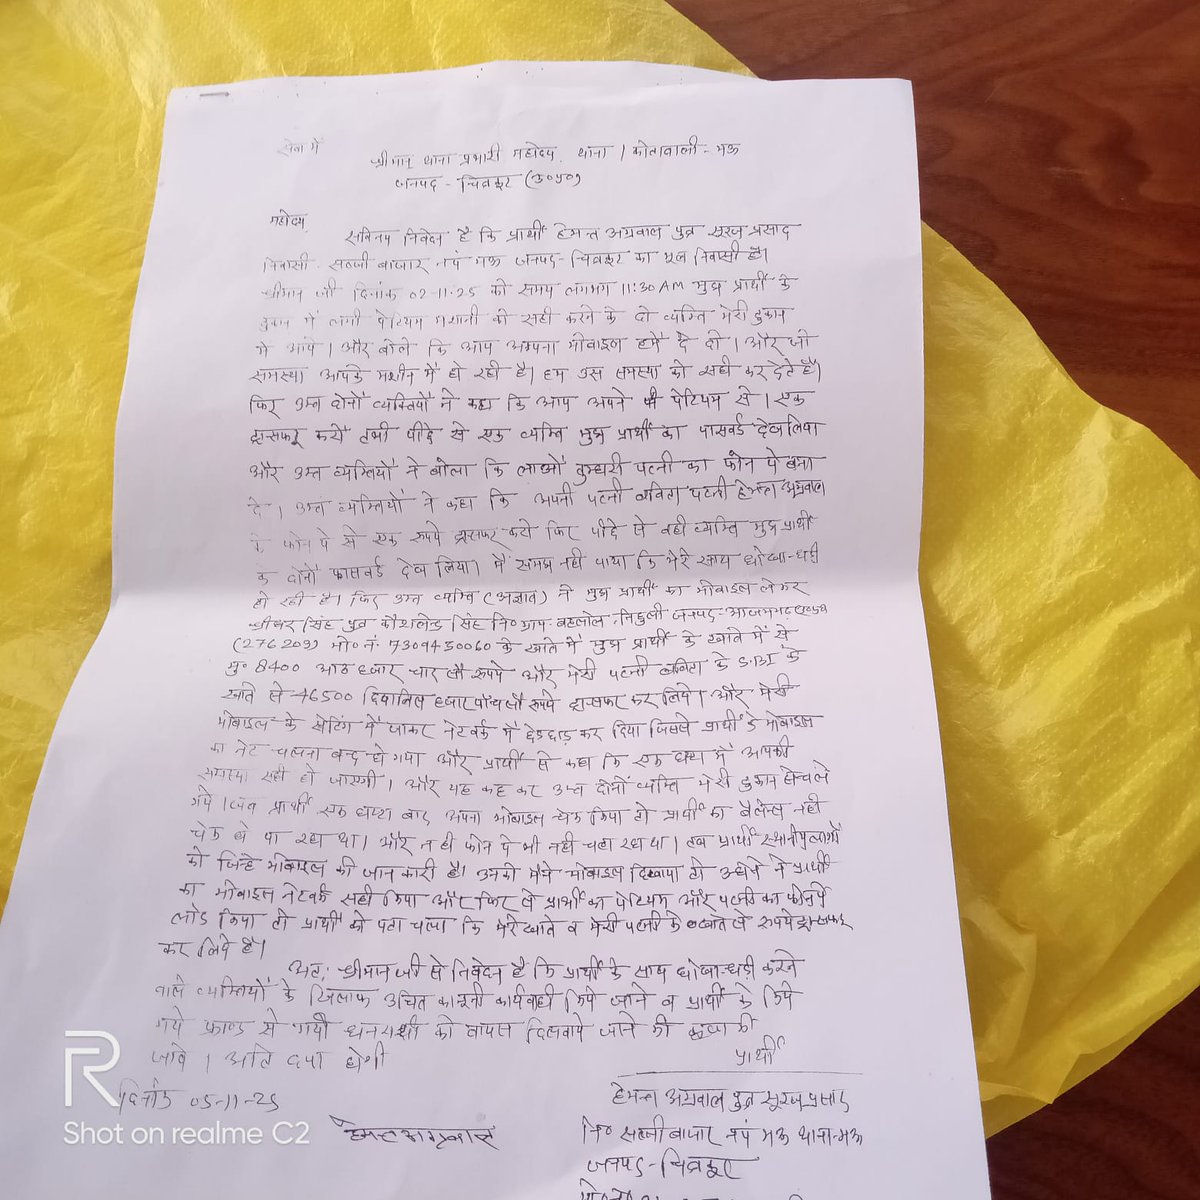 सेवा में
श्रीमान थाना प्रभारी महोदय. थाना / कोतवाली - मऊ
जनपद - चित्रकूट (उ०प्र०)
महोदय
सविनय निवेदन है कि प्रार्थी हेमन्त अग्रवाल पुत्र सूरज प्रसाद
निवासी. सब्जी बाजार नपं मऊ जनपद - चित्रकूट का मूल निवासी है।
श्रीमान जी दिनांक 02-11-25 को समय लगभग 11:30 AM मुझ प्रार्थी के
दुकान में लगी पेटियम मशानी को सही करने के दो व्यक्ति मेरी दुकान
में आये। और बोले कि आप अपना मोबाइल हमें दे दो। और जो
समस्या आपके मशीन में हो रही है। हम उस समस्या को सही कर देते है।
फिर उक्त दोनों व्यक्तियों ने कहा कि आप अपने पेटियम से। एक
ट्रान्सफर करो तभी पीछे से एक व्यक्ति मुझ प्रार्थी का पासवर्ड देख लिया
और उक्त व्यक्तियों ने बोला कि लाओ तुम्हारी पत्नी का फोन पे बना
दे। उक्त व्यक्तियों ने कहा कि अपनी पत्नी पत्नी हेमन्त अग्रवाल
के फोन पे से एक रूपये ट्रान्सफर करो फिर पीछे से वही व्यक्ति मुझ प्रार्थी
के दोनों पासवर्ड देख लिया। मैं समझ नही पाया कि मेरे साथ धोखा-धड़ी
हो रही है। फिर उक्त व्यक्ति (अज्ञात) ने मुझ प्रार्थी का मोबाइल लेकर
सिंह पुत्र कौशलेन्द्र सिंह नि० ग्राम बहलोल जनपद - आजमगढ़
(276209) मो० नं. 7309450060 के खाते में मुझ प्रार्थी के खाते में से
मु० 8400 आठ हजार चार सौ रूपये और मेरी पत्नी के S.B.I के
खाते से 46500 हजार पाँच सौ रूपये ट्रान्सफर कर लिये। और मेरी
मोबाइल के सेटिंग में जाकर नेटवर्क में छेड़छाड़ कर दिया जिससे प्रार्थी के मोबाइल
का नेट चलना बन्द हो गया और प्रार्थी से कहा कि एक घण्टा में आपकी
समस्या सही हो जाएगी। और यह कह कर उक्त दोनों व्यक्ति मेरी दुकान से चले
गये। जब प्रार्थी एक घण्टा बाद अपना मोबाइल चेक किया तो प्रार्थी का बैलेन्स नही
चेक हो पा रहा था। और न ही फोन पे भी नही चल रहा था। तब प्रार्थी स्थानीय लोगों
को जिन्हे मोबाइल की जानकारी है। उनको मैने मोबाइल दिखाया तो उन्होंने ने प्रार्थी
का मोबाइल नेटवर्क सही किया और फिर से प्रार्थी का पेटियम और पत्नी का फोनपे
लोड किया तो प्रार्थी को पता चला कि मेरे खाते व मेरी पत्नी के खाते से रूपये ट्रान्सफर
कर लिये है।
अतः श्रीमान जी से निवेदन है कि प्रार्थी के साथ धोखा-धड़ी करने
वाले व्यक्तियों के खिलाफ उचित कानूनी कार्यवाही किये जाने व प्रार्थी के किये
गये फ्राण्ड से गयी धनराशी को वापस दिलवाये जाने की कृपा की
जावे। अति दया होगी
प्रार्थी
दिनांक 05-11-25
हेमन्त अग्रवाल पुत्र सूरज प्रसाद
हेमन्त अग्रवाल
नि० सब्जी बाजार नपं मऊ थाना - मऊ
जनपद - चित्रकूट
R
Shot on realme C2